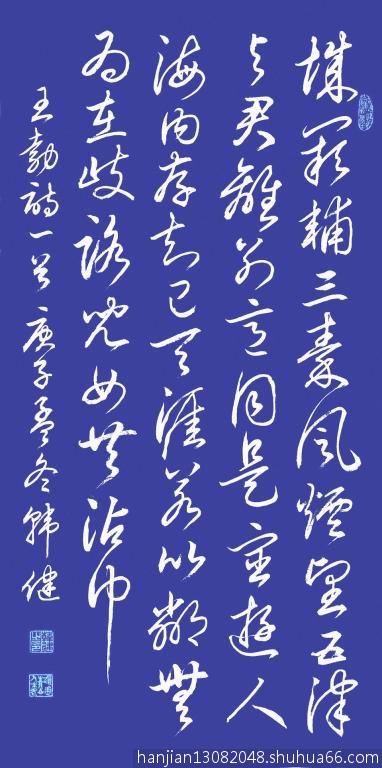 城闕輔三秦風煙望五津
与君離别意同是宦遊人
海内存知己天涯若比鄰無
為在歧路兒女共沾巾
王勃詩一首庚子孟冬韓健
hanjian13082048.shuhua66.com